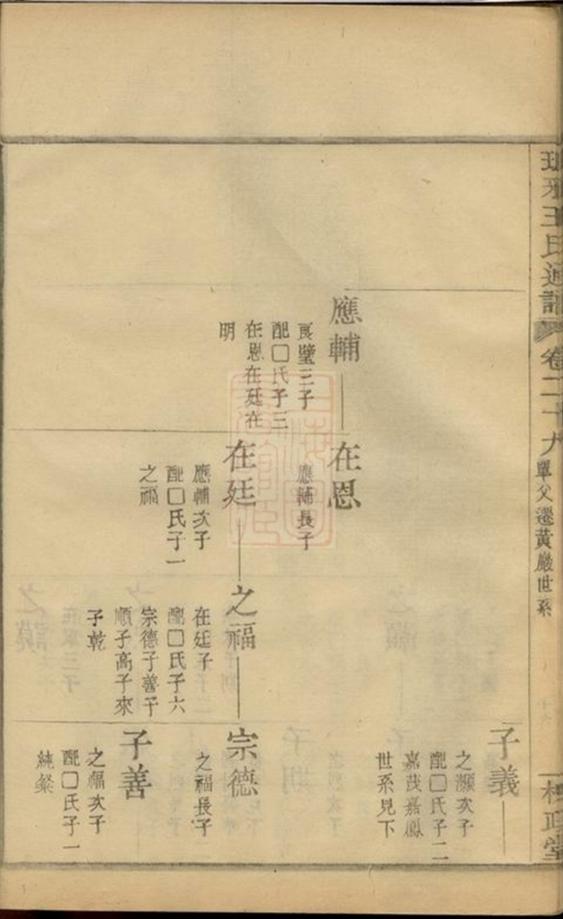 瑯琊王氏通譜
卷二十九
單父遷黃巖世系
槐政堂
子義
之灝次子
配□氏子二
嘉茂嘉鳳
世系見下
應輔
良璧三子
配□氏子三
在恩在廷在
明
在恩
應輔長子
在廷
應輔次子
配□氏子一
之福
之福
在廷子
配□氏子六
宗德子善子
順子高子來
子乾
宗德
之福長子
子善
之福次子
配□氏子一
純粲